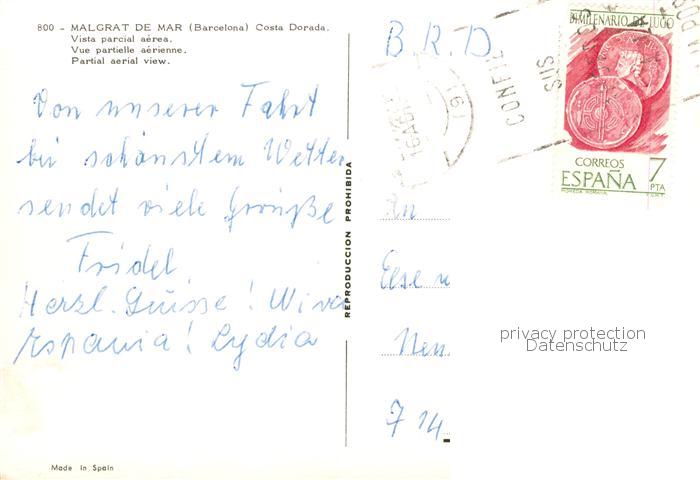 800 - MALGRAT DE MAR (Barcelona) Costa Dorada.
Vista parcial aérea.
Vue partielle aérienne.
Partial aerial view.
Von unserer Fahrt
bei schönstem Wetter
sendet viele Grüße
Fridel
Herzl. Grüsse! Viva
Espania! Lydia
Made in Spain
REPRODUCCION PROHIBIDA
B.R.D.
CONFIE
SUS
BIMILENARIO DE LUGO
CORREOS
ESPAÑA
7
PTA
An
Else
Neu
7 14
privacy protection
Datenschutz